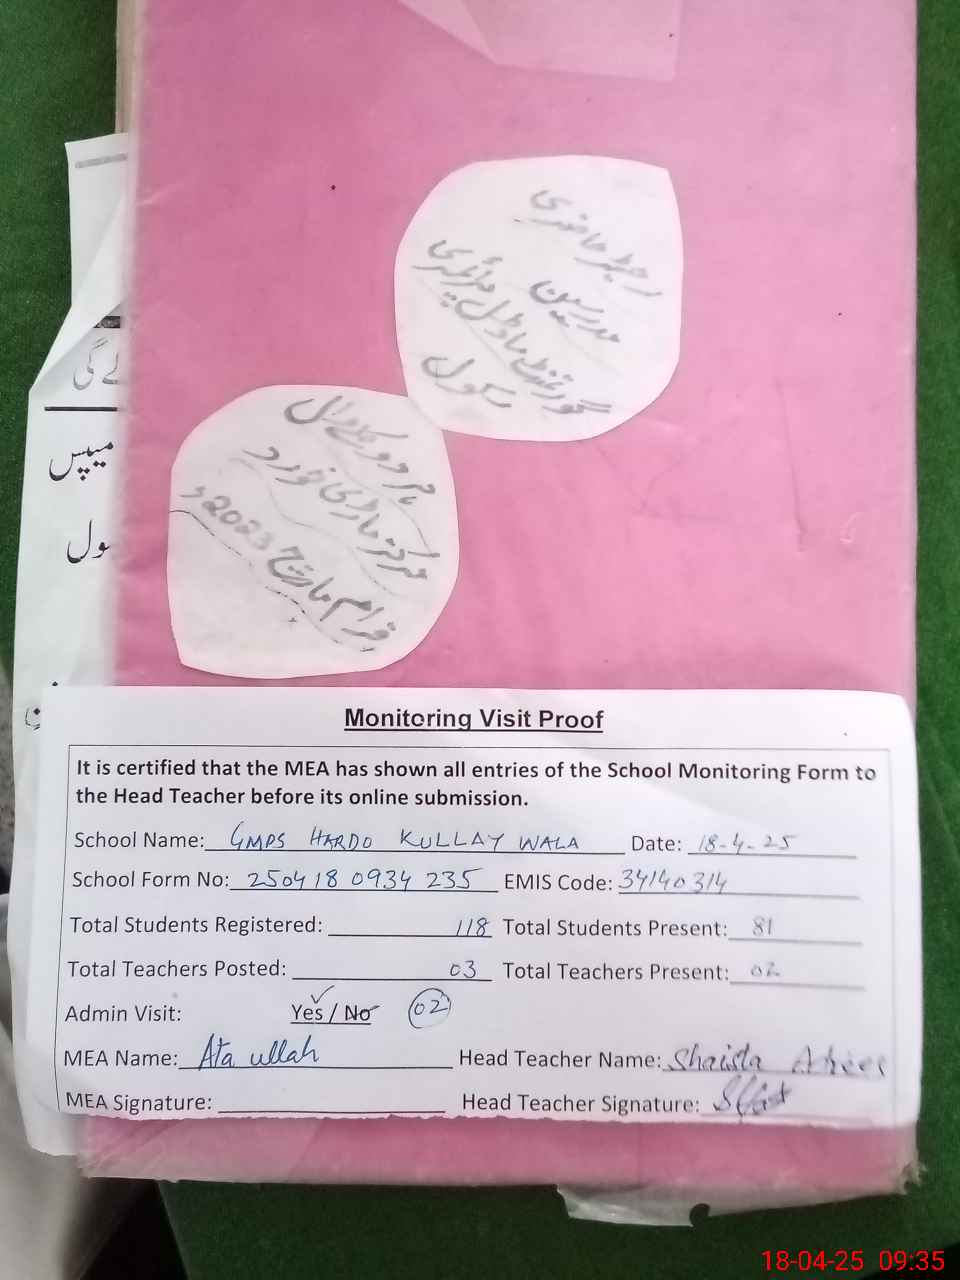 رجسٹر حاضری
مدرسین
گورنمنٹ ماڈل پرائمری
سکول
ہردو کلے وال
مرکز ماڑی خورد
فرام مارچ 2023ء
لے گی
میپس
ول
Monitoring Visit Proof
It is certified that the MEA has shown all entries of the School Monitoring Form to
the Head Teacher before its online submission.
School Name: GMPS HARDO KULLAY WALA Date: 18-4-25
School Form No: 250418 0934 235 EMIS Code: 34140314
Total Students Registered: 118 Total Students Present: 81
Total Teachers Posted: 03 Total Teachers Present: 02
Admin Visit: Yes / No 02
MEA Name: Ata ullah Head Teacher Name: Shaista
MEA Signature: Head Teacher Signature:
18-04-25 09:35